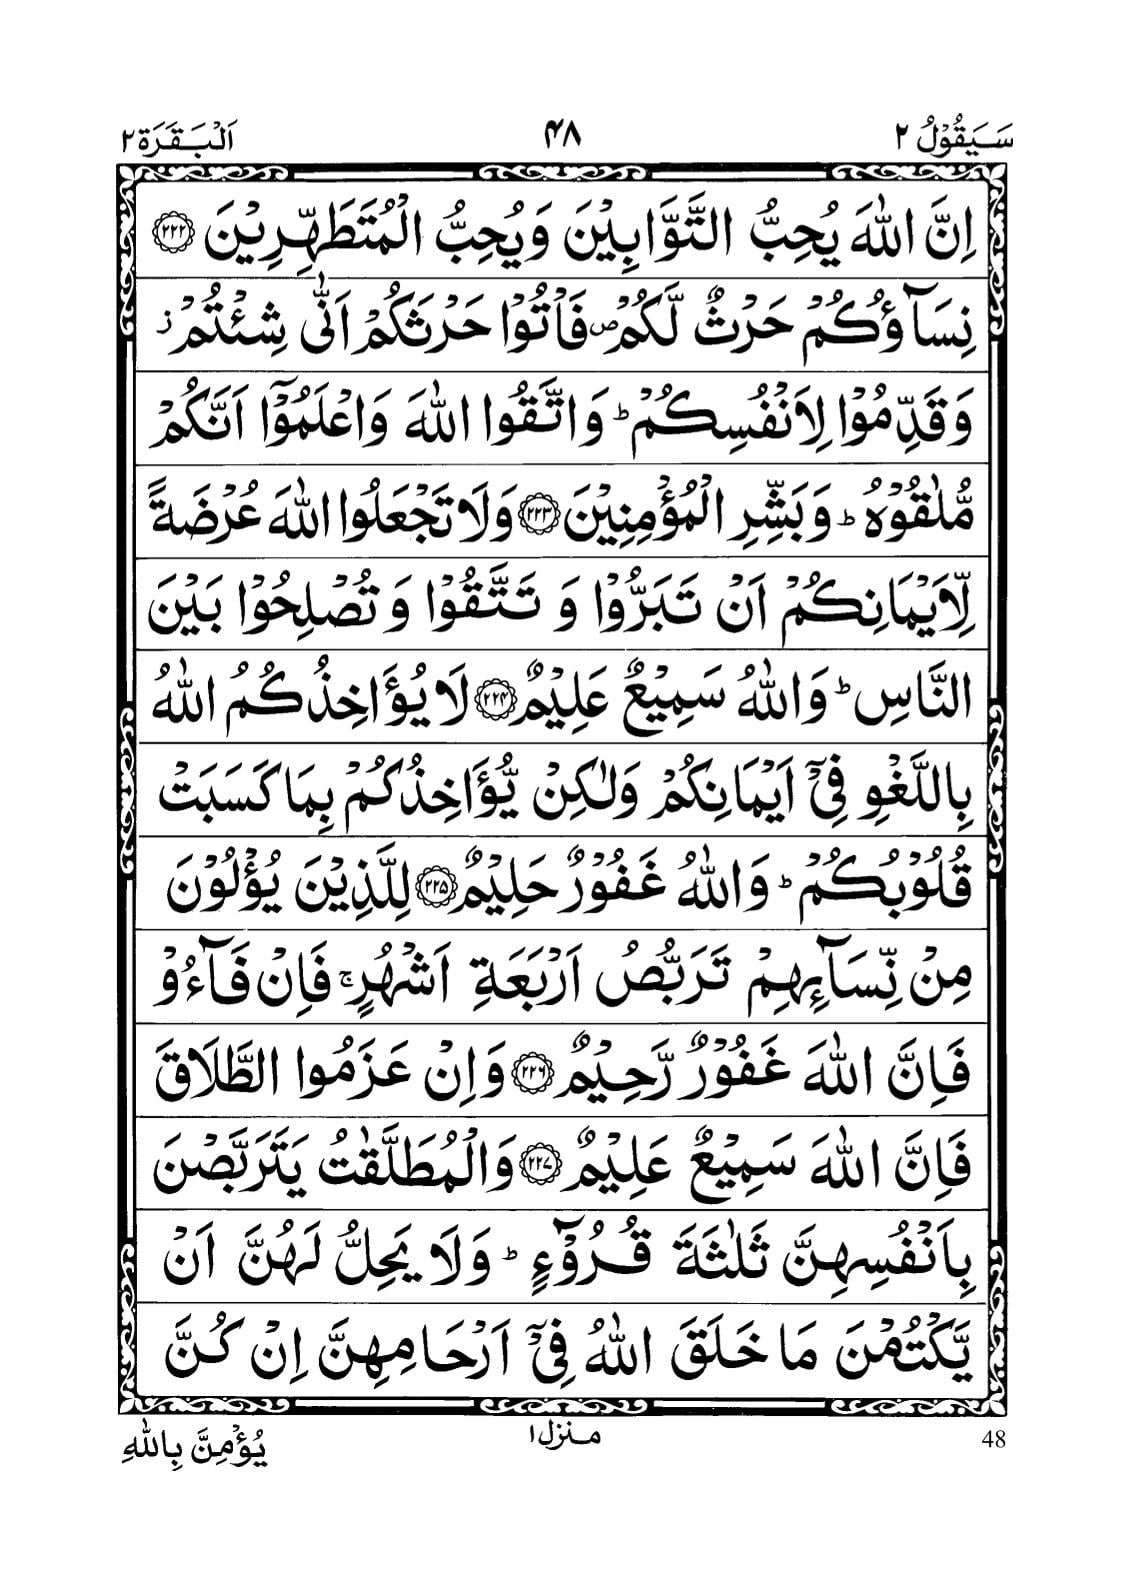 سَيَقُوۡلُ ۲
۴۸
اَلۡبَقَرَة ۲
اِنَّ اللّٰهَ يُحِبُّ التَّوَّابِيۡنَ وَيُحِبُّ الۡمُتَطَهِّرِيۡنَ ﴿۲۲۲﴾
نِسَآؤُكُمۡ حَرۡثٌ لَّكُمۡ ۖ فَاۡتُوۡا حَرۡثَكُمۡ اَنّٰى شِئۡتُمۡ ز
وَقَدِّمُوۡا لِاَنۡفُسِكُمۡ ؕ وَاتَّقُوا اللّٰهَ وَاعۡلَمُوۡٓا اَنَّكُمۡ
مُّلٰقُوۡهُ ؕ وَبَشِّرِ الۡمُؤۡمِنِيۡنَ ﴿۲۲۳﴾ وَلَا تَجۡعَلُوا اللّٰهَ عُرۡضَةً
لِّاَيۡمَانِكُمۡ اَنۡ تَبَرُّوۡا وَ تَتَّقُوۡا وَ تُصۡلِحُوۡا بَيۡنَ
النَّاسِ ؕ وَاللّٰهُ سَمِيۡعٌ عَلِيۡمٌ ﴿۲۲۴﴾ لَا يُؤَاخِذُكُمُ اللّٰهُ
بِاللَّغۡوِ فِىۡٓ اَيۡمَانِكُمۡ وَلٰكِنۡ يُّؤَاخِذُكُمۡ بِمَا كَسَبَتۡ
قُلُوۡبُكُمۡ ؕ وَاللّٰهُ غَفُوۡرٌ حَلِيۡمٌ ﴿۲۲۵﴾ لِلَّذِيۡنَ يُؤۡلُوۡنَ
مِنۡ نِّسَآئِهِمۡ تَرَبُّصُ اَرۡبَعَةِ اَشۡهُرٍ ۚ فَاِنۡ فَآءُوۡ
فَاِنَّ اللّٰهَ غَفُوۡرٌ رَّحِيۡمٌ ﴿۲۲۶﴾ وَاِنۡ عَزَمُوا الطَّلَاقَ
فَاِنَّ اللّٰهَ سَمِيۡعٌ عَلِيۡمٌ ﴿۲۲۷﴾ وَالۡمُطَلَّقٰتُ يَتَرَبَّصۡنَ
بِاَنۡفُسِهِنَّ ثَلٰثَةَ قُرُوۡٓءٍ ؕ وَلَا يَحِلُّ لَهُنَّ اَنۡ
يَّكۡتُمۡنَ مَا خَلَقَ اللّٰهُ فِىۡٓ اَرۡحَامِهِنَّ اِنۡ كُنَّ
48
منزل ۱
يُؤۡمِنَّ بِاللّٰهِ